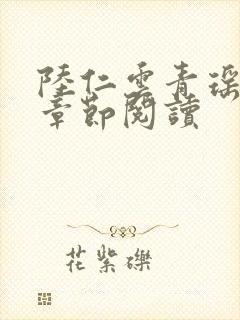 陸仁雲青瑶
章節閱讀
花紫礫